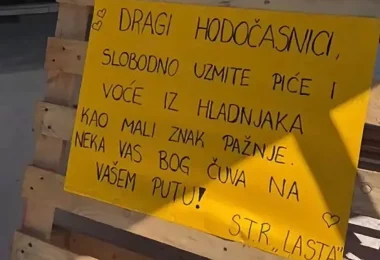 DRAGI HODOČASNICI,
SLOBODNO UZMITE PIĆE I
VOĆE IZ HLADNJAKA
KAO MALI ZNAK PAŽNJE.
NEKA VAS BOG ČUVA NA
VAŠEM PUTU!
S.T.R. „LASTA"